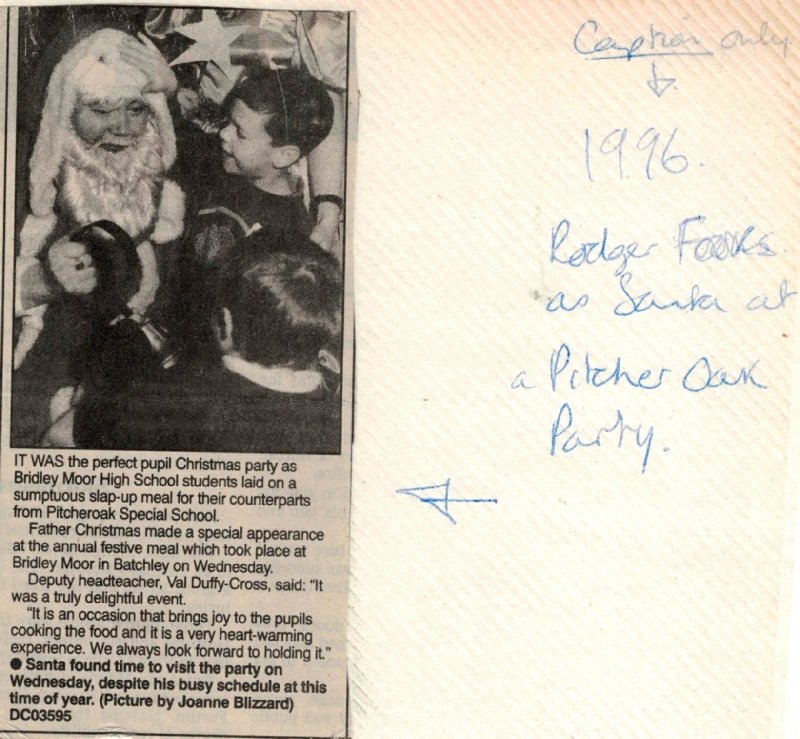 IT WAS the perfect pupil Christmas party as
Bridley Moor High School students laid on a
sumptuous slap-up meal for their counterparts
from Pitcheroak Special School.
Father Christmas made a special appearance
at the annual festive meal which took place at
Bridley Moor in Batchley on Wednesday.
Deputy headteacher, Val Duffy-Cross, said: "It
was a truly delightful event.
"It is an occasion that brings joy to the pupils
cooking the food and it is a very heart-warming
experience. We always look forward to holding it."
● Santa found time to visit the party on
Wednesday, despite his busy schedule at this
time of year. (Picture by Joanne Blizzard)
DC03595
Caption only
1996.
Rodger
as Santa at
a Pitcher Oak
Party.